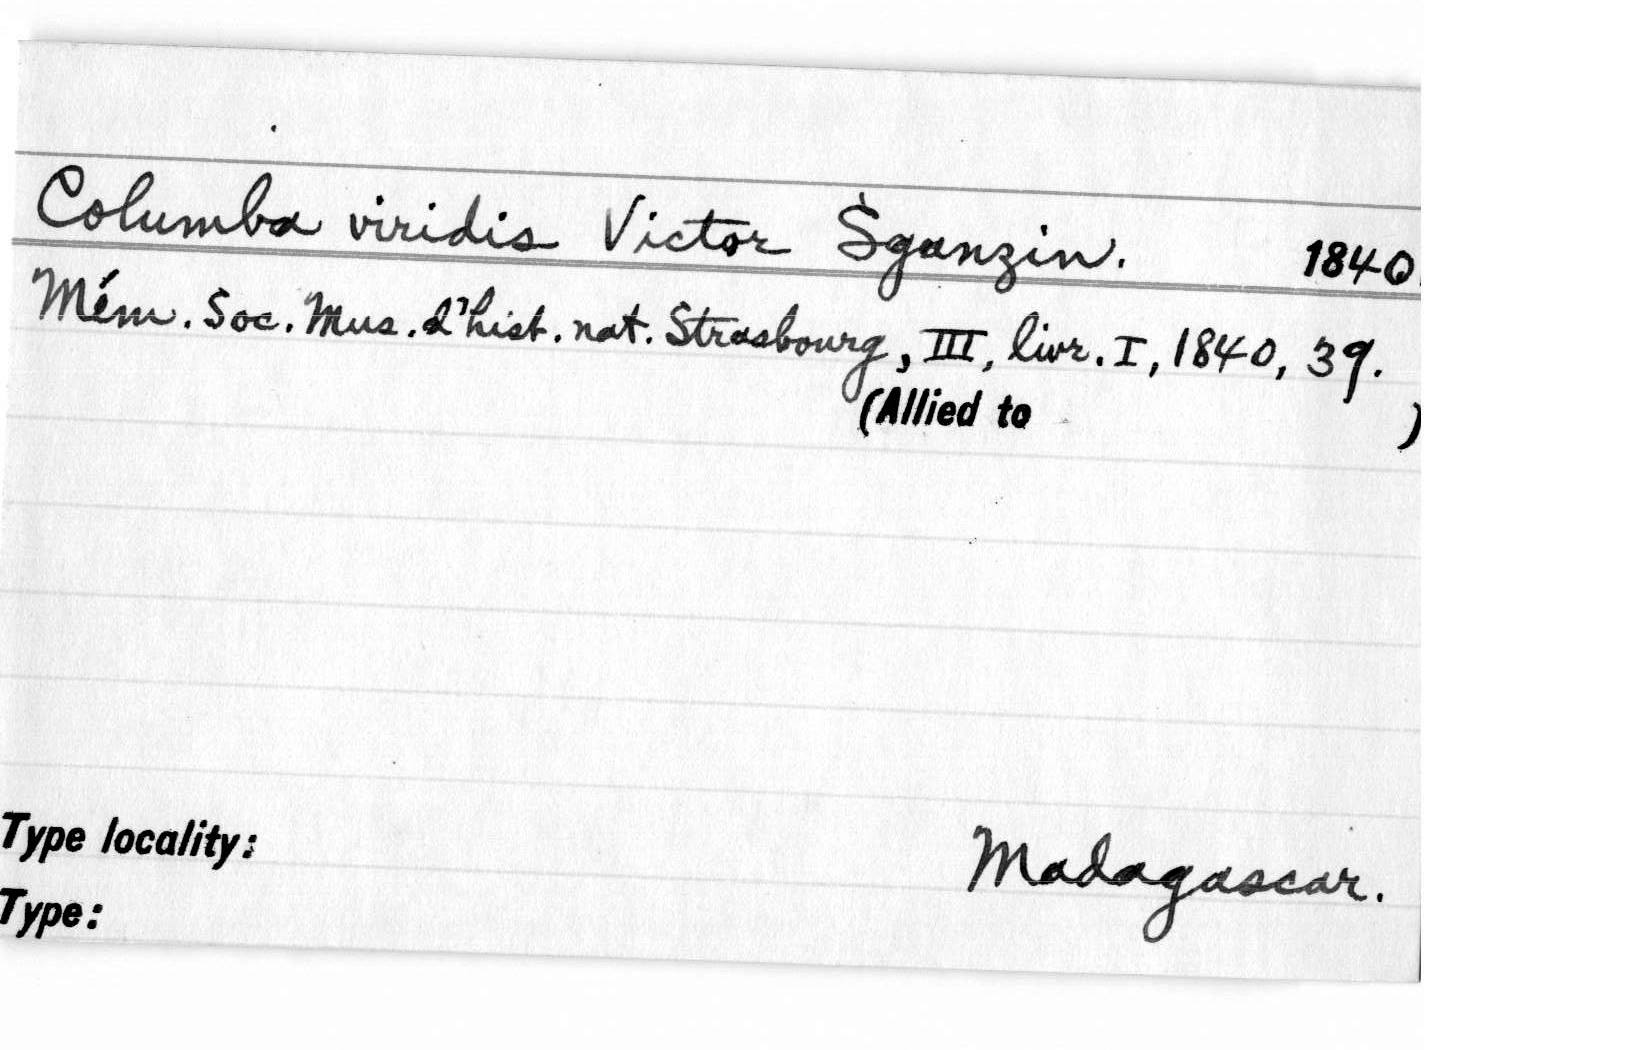 Columba viridis Victor Sganzin. 1840.
Mém. Soc. Mus. d'hist. nat. Strasbourg, III, livr. I, 1840, 39.
(Allied to )
Type locality: Madagascar.
Type: